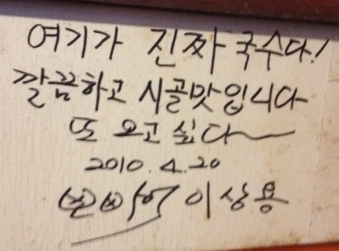 여기가 진짜 국수다!
깔끔하고 시골맛입니다
또 오고 싶다~
2010.4.20
이상용